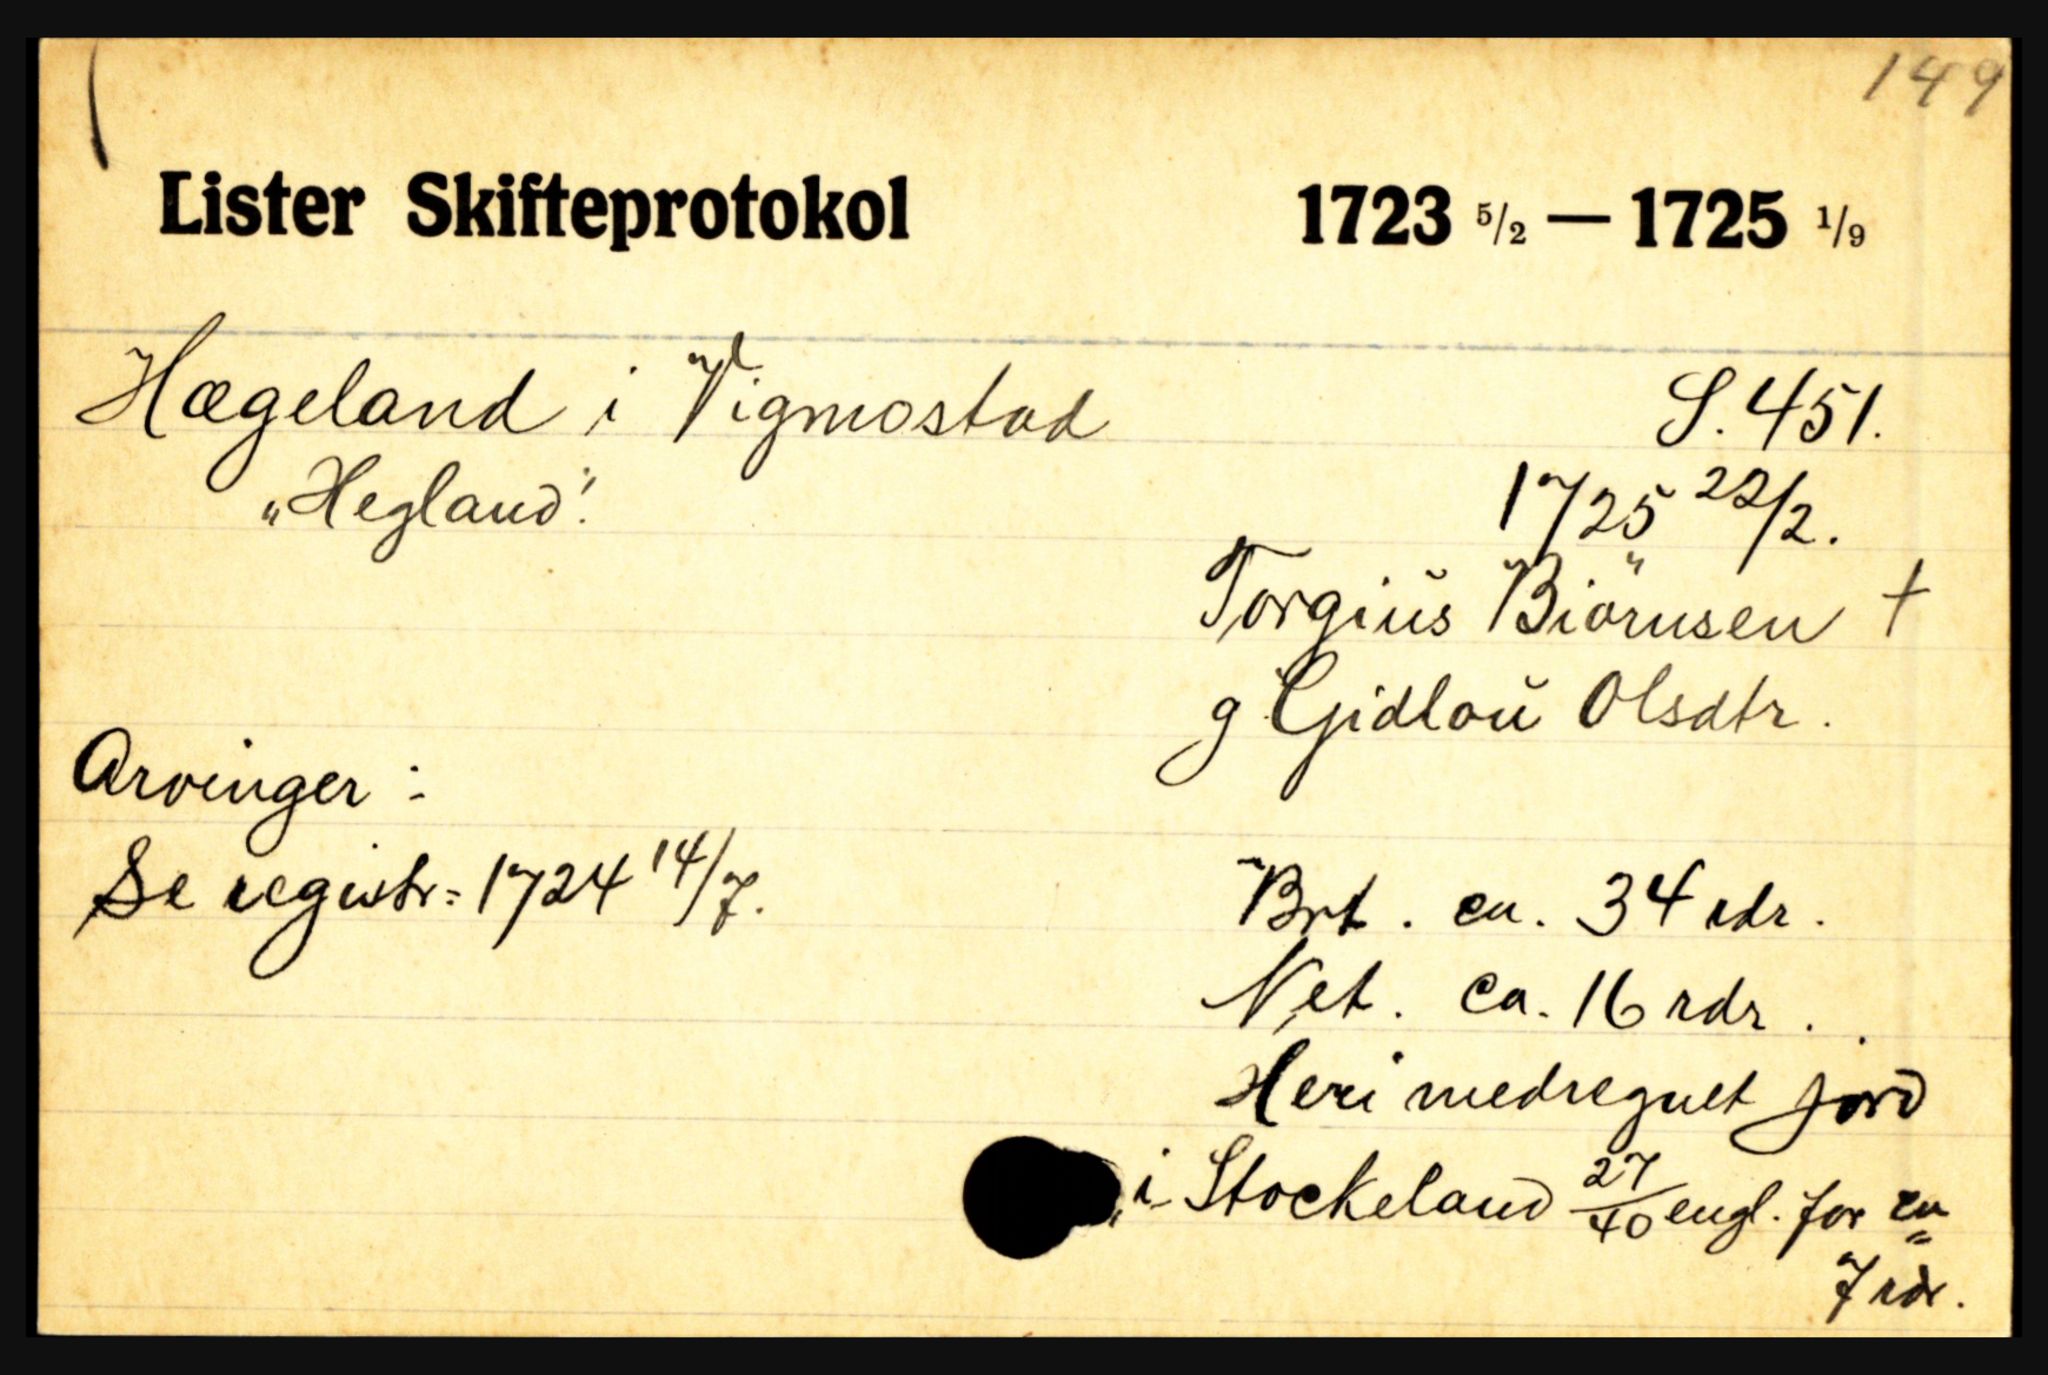 149
Lister Skifteprotokol 1723 5/2 — 1725 1/9
Hægeland i Vigmostad S. 451.
„Hegland". 1725 22/2.
Torgiŭs Biörnsen +
g Gidloŭ Olsdtr.
Arvinger:
Se registr: 1724 14/7. Brt. ca. 34 rdr.
Net. ca. 16 rdr.
Heri medregnet jord
i Stockeland 27/40 engl. for ca
7 rdr.